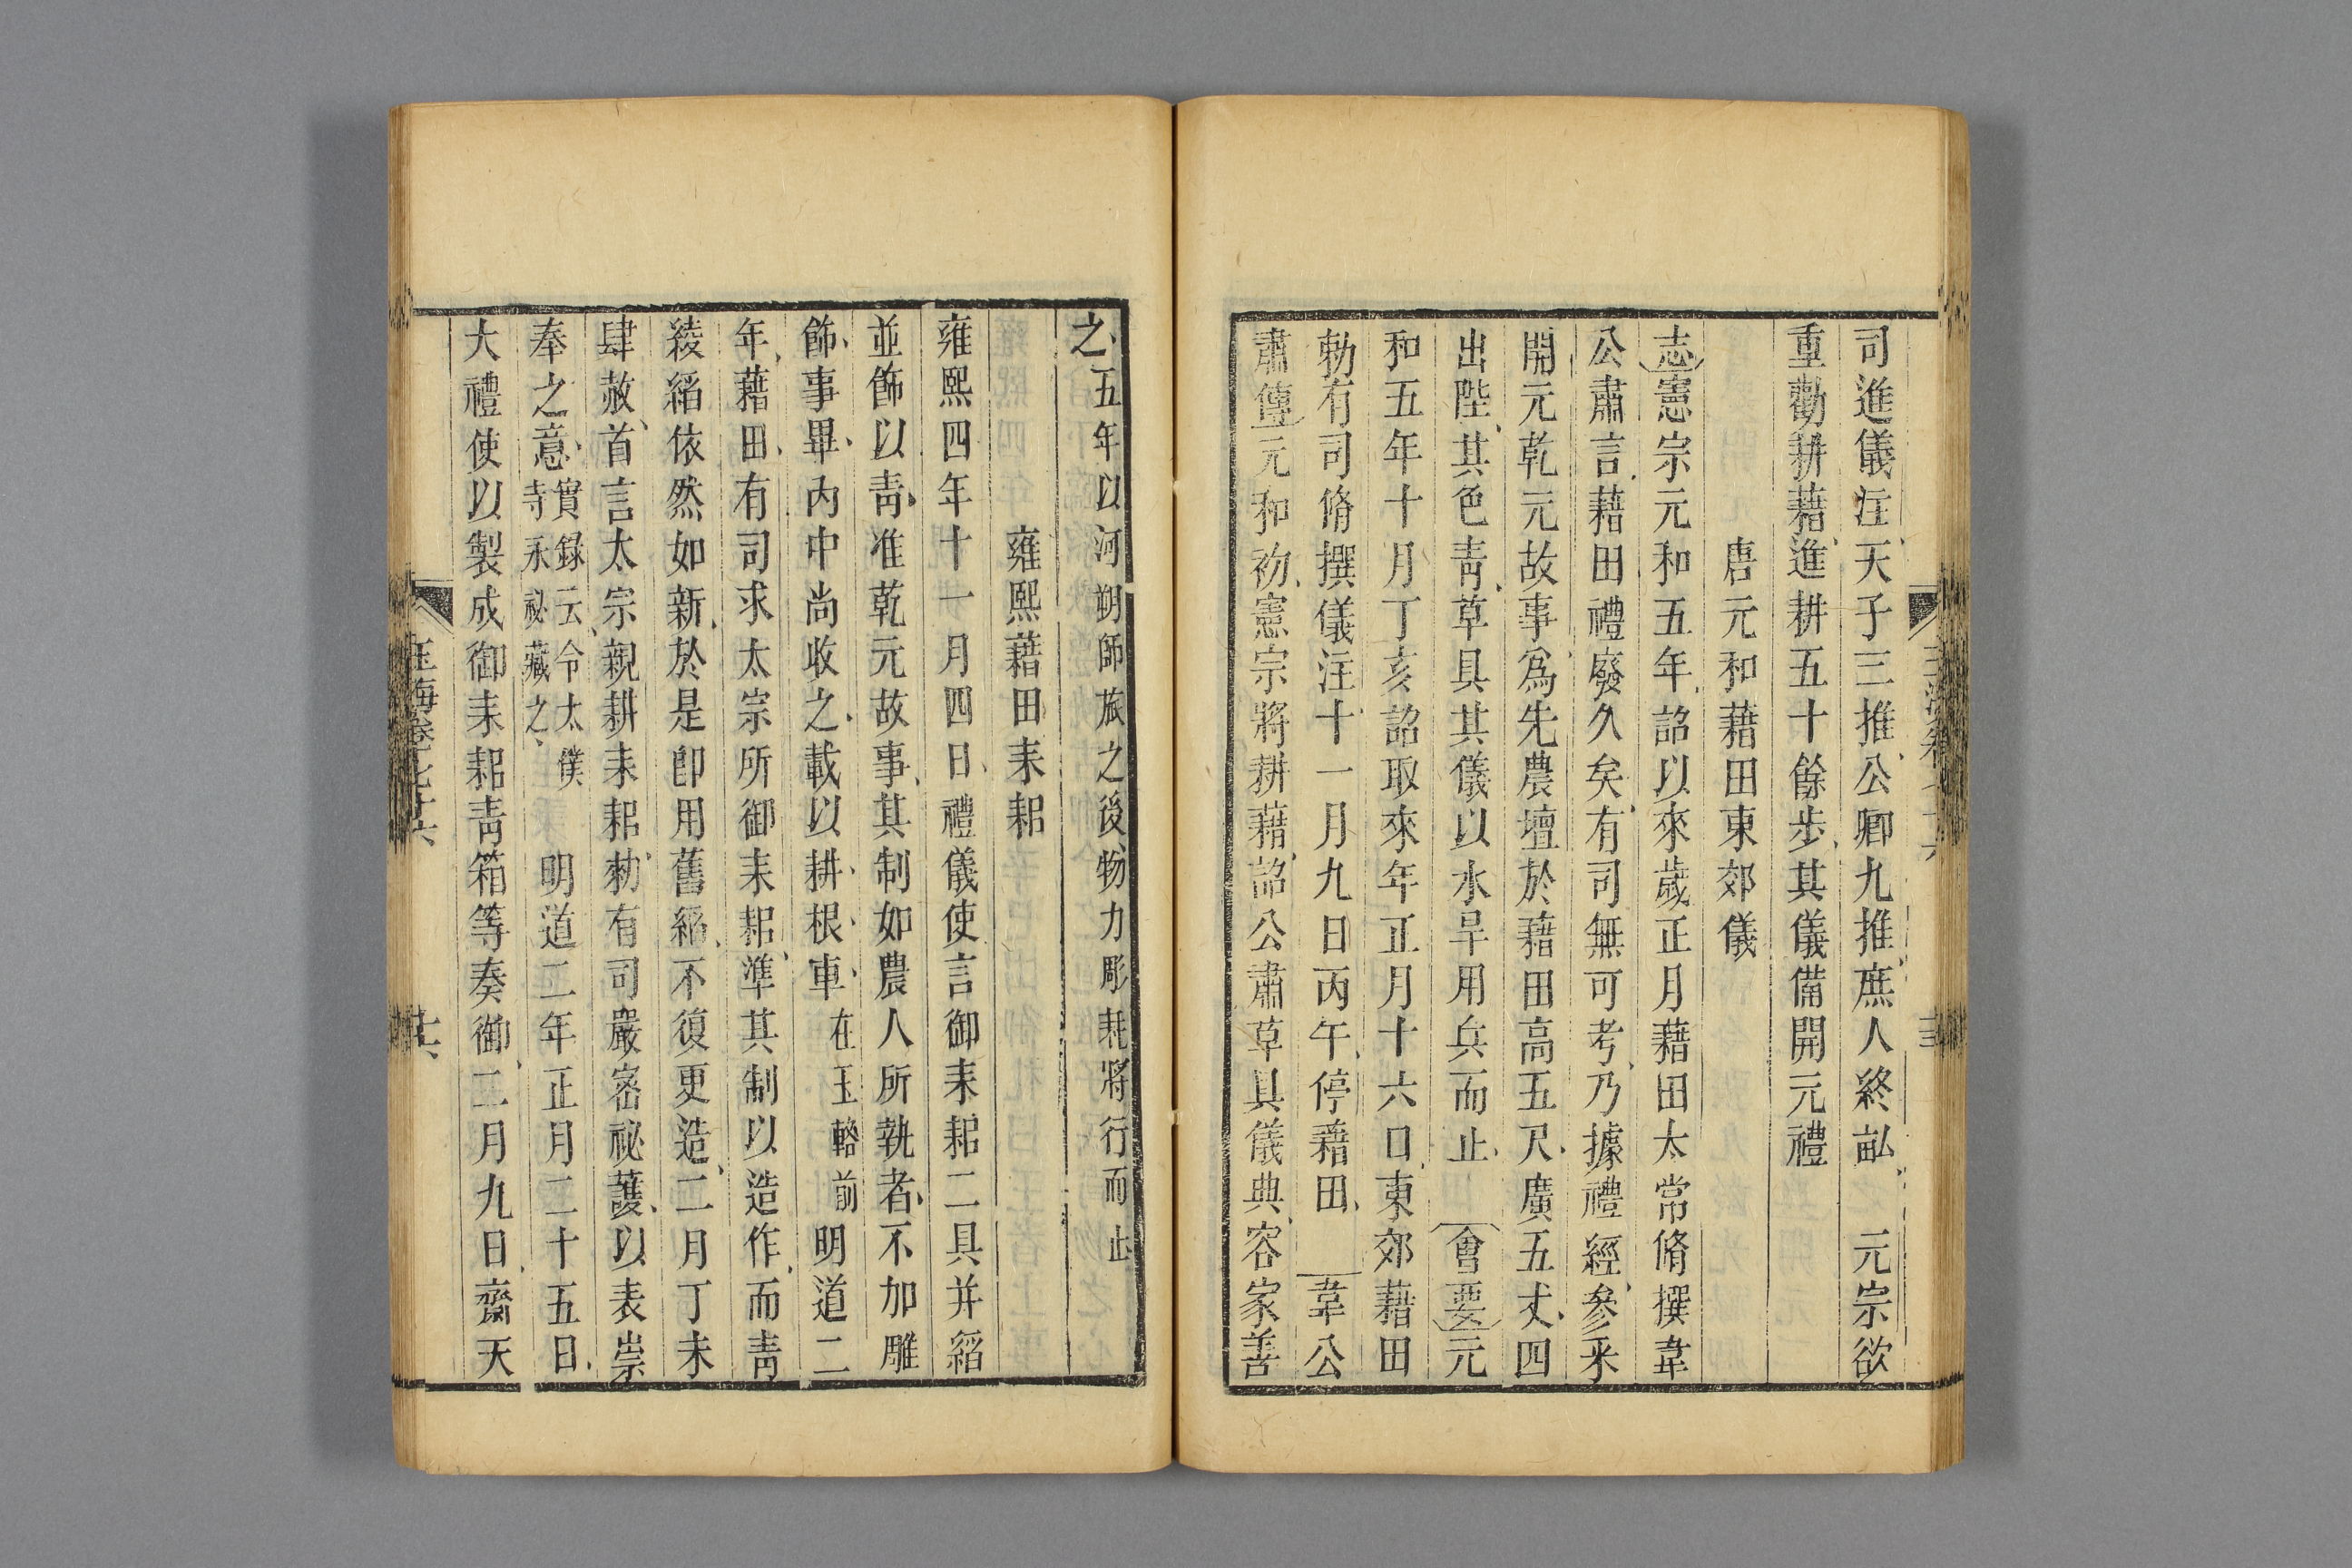 司進儀注天子三推公卿九推庶人終畝　元宗欲
重勸耕藉進耕五十餘步其儀備開元禮
唐元和藉田東郊儀
志憲宗元和五年詔以來歲正月藉田太常脩撰韋
公肅言藉田禮廢久矣有司無可考乃據禮經參采
開元乾元故事爲先農壇於藉田高五尺廣五丈四
出陛其色青草具其儀以水旱用兵而止　會要元
和五年十月丁亥詔取來年正月十六日東郊藉田
勑有司脩撰儀注十一月九日丙午停藉田　韋公
肅傳元和初憲宗將耕藉詔公肅草具儀典容家善
之五年以河朔師旅之後物力彫耗將行而止
雍熙藉田耒耜
雍熙四年十一月四日禮儀使言御耒耜二具并縚
並飾以青准乾元故事其制如農人所執者不加雕
飾事畢內中尚收之載以耕根車在玉輅前　明道二
年藉田有司求太宗所御耒耜準其制以造作而青
綾縚依然如新於是卽用舊縚不復更造二月丁未
肆赦首言太宗親耕耒耜勑有司嚴密祕護以表崇
奉之意實錄云令太僕寺永祕藏之　明道二年正月二十五日
大禮使以製成御耒耜青箱等奏御二月九日齋天
玉海卷七十六